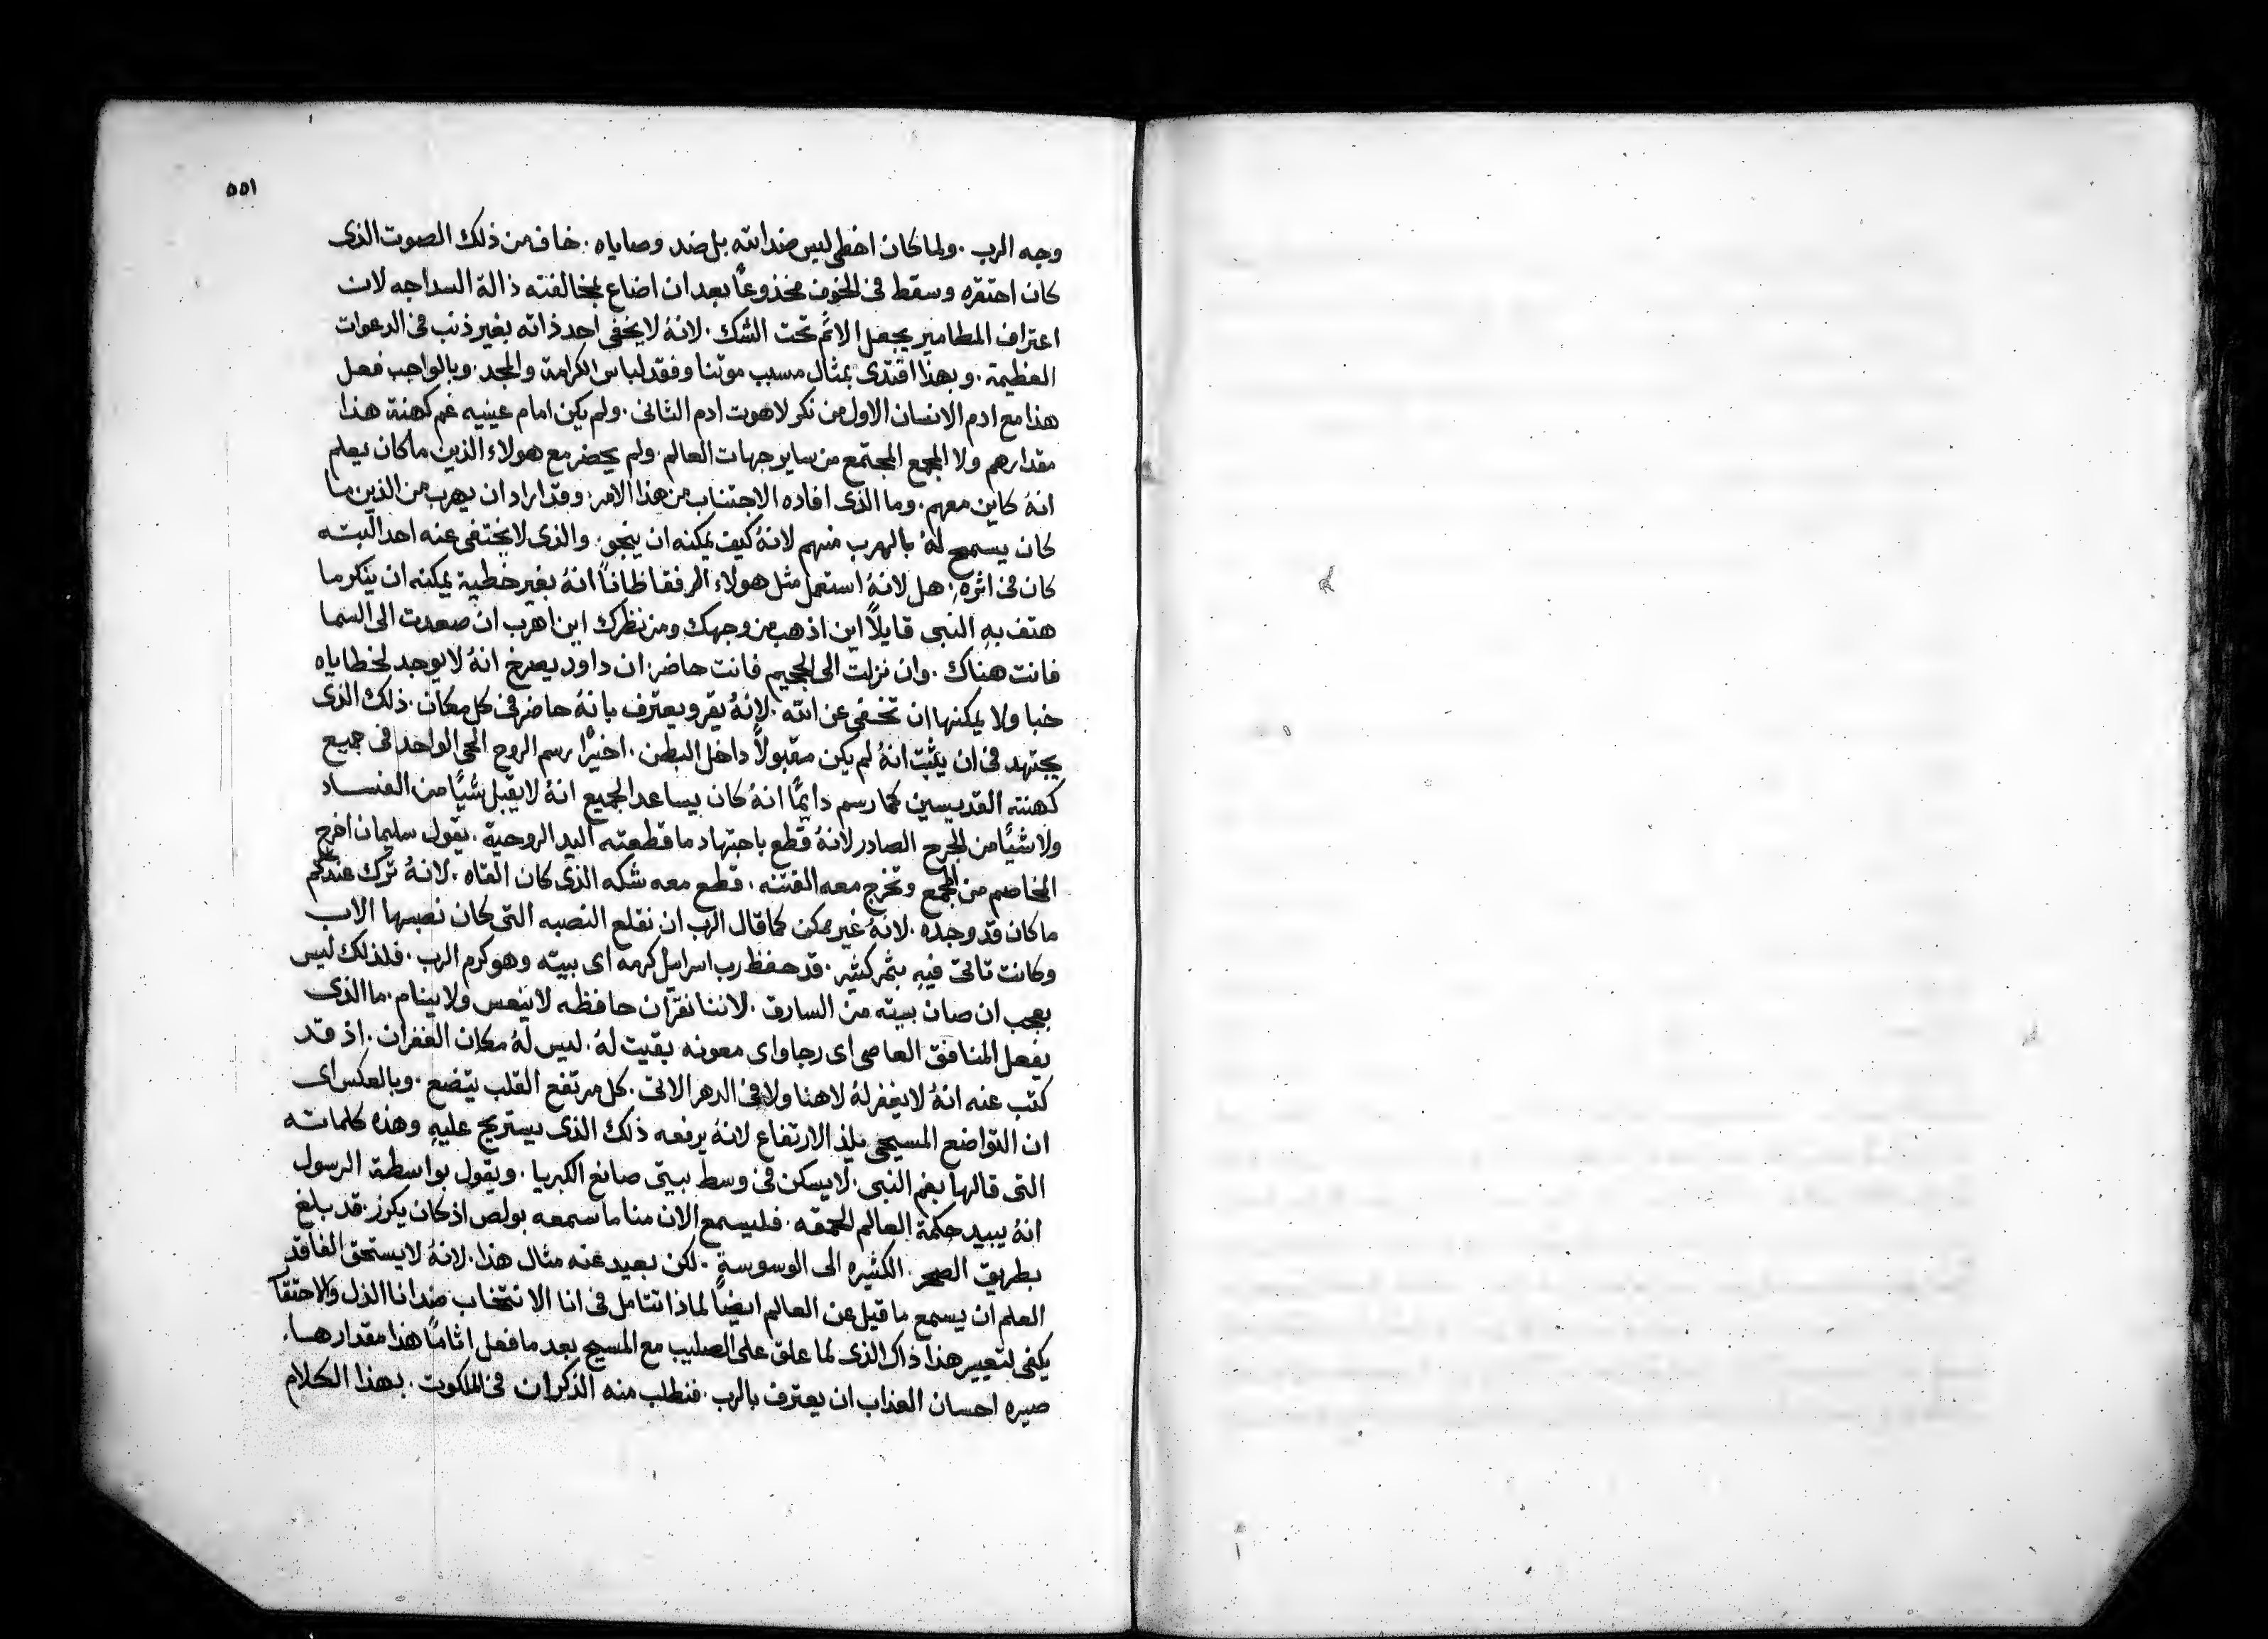 ٥٥١
وجه الرب. ولما كان اخطى ليس ضد الله بل ضد وصاياه. خاف من ذلك الصوت الذى
كان احتقره وسقط فى الخوف مخذوعاً بعد ان اضاع بمخالفته ذالة السداجه لان
اعتراف المطامير يجعل الاثم تحت الشك. لانهُ لا يخفى احد ذاته بغير ذنب فى الدعوات
العظيمة. وبهذا اقتدى بمثال مسبب موتنا وفقد لباس الكرامة والمجد. وبالواجب فعل
هذا مع ادم الانسان الاول من نكر لاهوت ادم الثانى. ولم يكن امام عينيه غم كهنة هذا
مقدارهم ولا المجمع المجتمع من ساير جهات العالم. ولم يحضر مع هولاء الذين ما كان يعلم
انهُ كاين معهم. وما الذى افاده الاجتناب من هذا الامر. وقد اراد ان يهرب من الذين ما
كان يسمح لهُ بالهرب منهم لانهُ كيف يمكنه ان ينجو. والذى لا يختفى عنه احد البته
كان فى اثرهِ. هل لانهُ استعمل مثل هولاء الرفقا ظاناً انهُ بغير خطية يمكنه ان ينكر ما
هتف بهِ النبى قايلاً اين اذهب من وجهك ومن نظرك اين اهرب ان صعدت الى السما
فانت هناك. وان نزلت الى الجحيم فانت حاضر. ان داود يصرخ انهُ لا يوجد لخطاياه
خبا ولا يمكنها ان تخفى عن الله. لانهُ يقر ويعترف بانهُ حاضر فى كل مكان. ذلك الذى
يجتهد فى ان يثبت انهُ لم يكن مقبولاً داخل البطن. اخيرًا رسم الروح الحى الواحد فى جميع
كهنته القديسين كما رسم دايمًا انهُ كان يساعد الجميع انهُ لا يقبل شيًا من الفساد
ولا شيًا من الجرح الصادر لانهُ قطع باجتهاد ما قطعته اليد الروحية. يقول سليمان اخرج
المخاصم من المجمع وتخرج معه الفتنه. قطع معه شكه الذى كان القاه. لانهُ ترك عندكم
ما كان قد وجده. لانهُ غير ممكن كما قال الرب ان نقلع النصبه التى كان نصبها الاب
وكانت تاتى فيهِ بثمر كثير. قد حفظ رب اسراييل كرمه اى بيته وهو كرم الرب. فلذلك ليس
بعجب ان صان بيته من السارق. لاننا نقر ان حافظه لا ينعس ولا ينام. ما الذى
يفعل المنافق العاصى اى رجا واى معونه بقيت لهُ. ليس لهُ مكان الغفران. اذ قد
كتب عنه انهُ لا يغفر لهُ لا هنا ولا فى الدهر الاتى. كل مرتفع القلب يتضع. وبالعكس اى
ان التواضع المسيحى يلذ الارتفاع لانهُ يرفعه ذلك الذى يستريح عليهِ وهذه كلماته
التى قالها بفم النبى. لا يسكن فى وسط بيتى صانع الكبريا. ويقول بواسطة الرسول
انهُ يبيد حكمة العالم الحمقه. فليسمع الان منا ما سمعه بولص اذ كان يكرز. قد بلغ
بطريق السحر الكثيره الى الوسوسةِ. لكن بعيد عنه مثال هذا. لانهُ لا يستحق الفاقد
العلم ان يسمع ما قيل عن العالم ايضاً لماذا نتامل فى انا الانتخاب ضد انا الذل والاحتقا
يكفى لتعيير هذا ذاك الذى لما علق على الصليب مع المسيح بعد ما فعل اثامًا هذا مقدارها.
صيره احسان العذاب ان يعترف بالرب. فنطلب منه الذكران فى الملكوت. بهذا الكلام